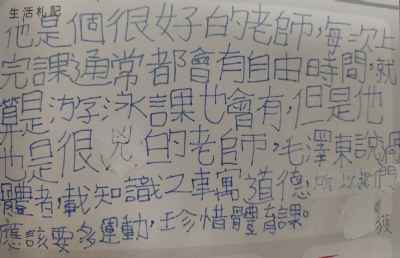 生活札記
他是個很好的老師,每次上
完課通常都會有自由時間,就
算是游泳課也會有,但是他
也是很兇的老師,毛澤東說過
體者,載知識之車寓道德,所以我們
應該要多運動,珍惜體育課。